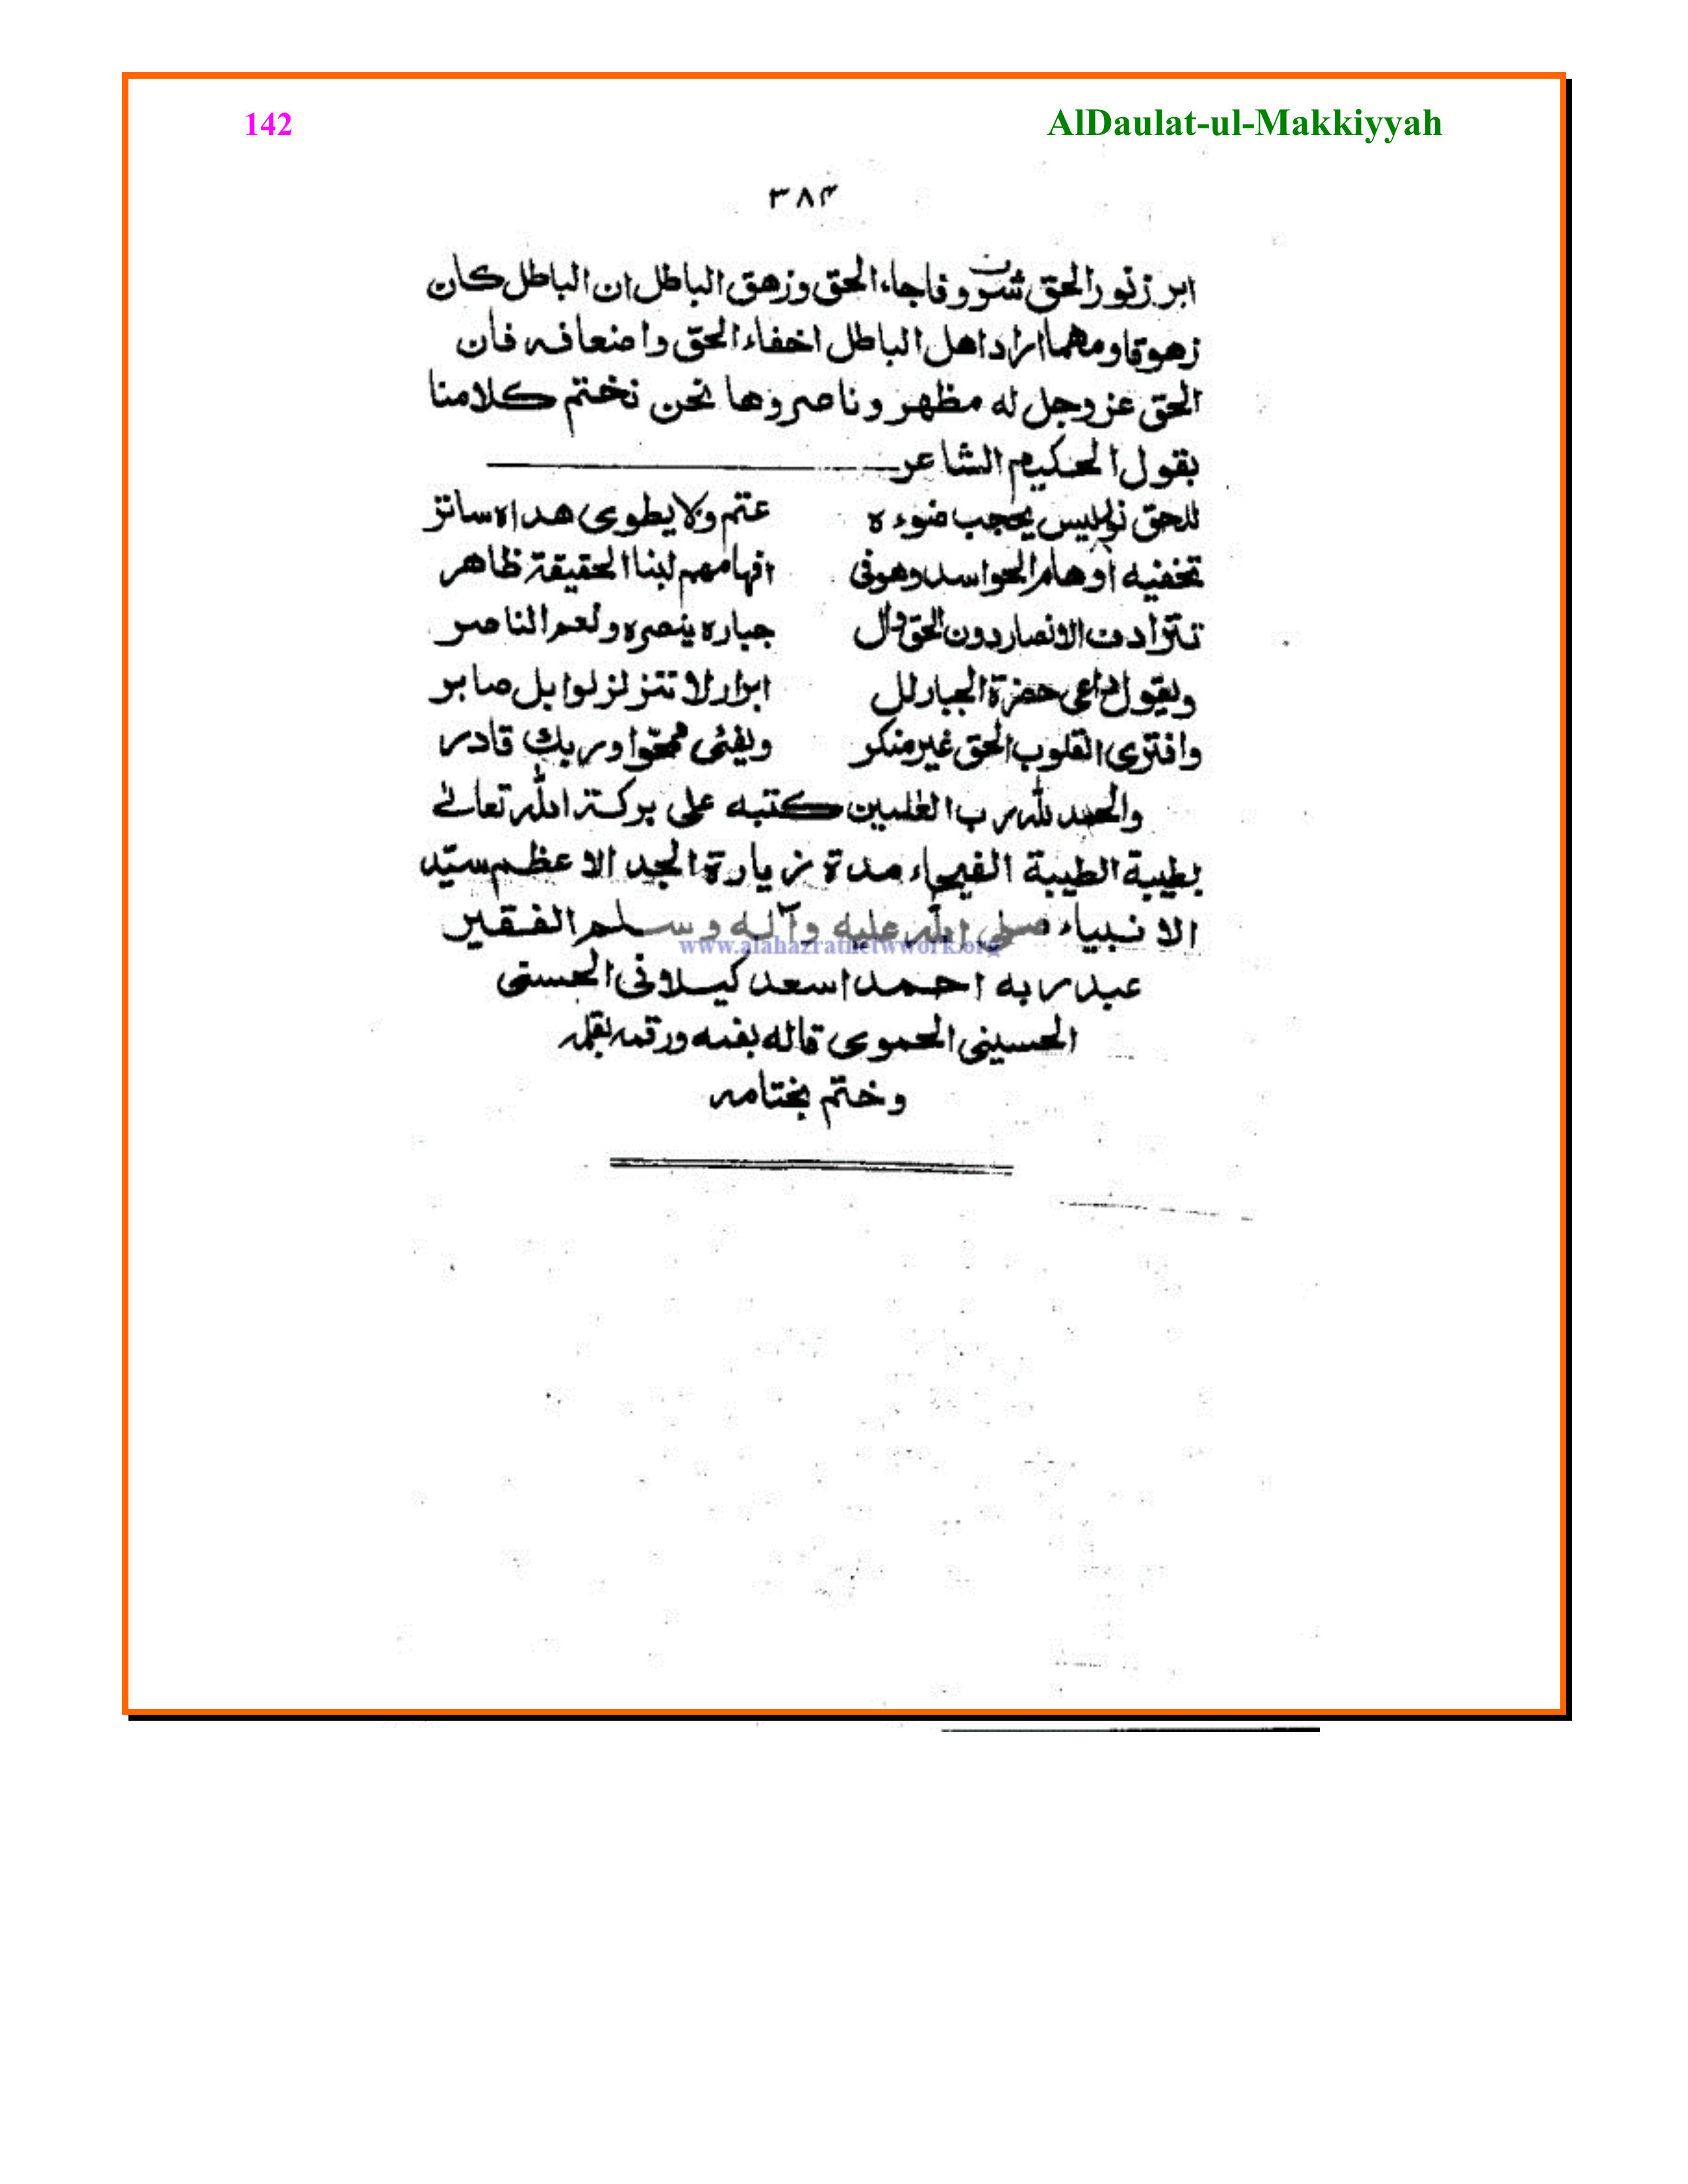 142 AlDaulat-ul-Makkiyyah
۳۸۴
ابرز نور الحق فاجاء الحق وزهق الباطل ان الباطل كان
زهوقا ومهما اراد اهل الباطل اخفاء الحق واضعافه فان
الحق عز وجل له مظهر وناصر وها نحن نختم كلامنا
بقول الحكيم الشاعر
للحق نور ليس يحجب ضوءه عتم ولا يطوى هداه ساتر
تخفيه اوهام الحواسد وهو في افهامهم لبنا الحقيقة ظاهر
تترادف الانصار دون الحق وال جباره ينصره ولعم الناصر
ويقول داعى حضرة الجبار لل ابرار لا تتزلزلوا بل صابر
القلوب الحق غير منكر وربك قادر
والحمد لله رب العلمين كتبه على بركة الله تعالے
بطيبة الطيبة الفيحاء مدة زيارة الجد الاعظم سيّد
الانبياء صلى الله عليه وآله وسلم الفقير
www.alahazratnetwork.org
عبد ربه احمد اسعد كيلانى الحسنى
الحسينى الحموى قاله بفمه ورقمه بقلمه
وختم بختامه